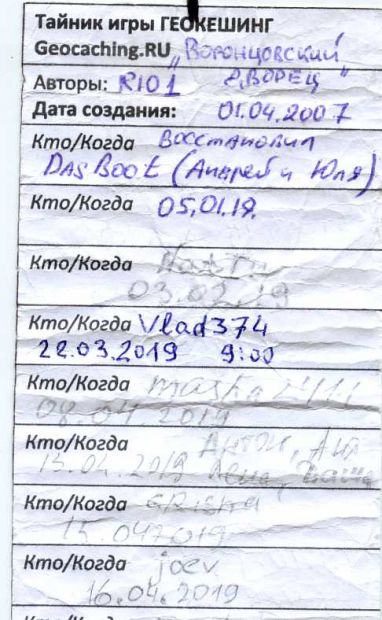 Тайник игры ГЕОКЕШИНГ
Geocaching.RU „Воронцовский
Авторы: RIO1 дворец"
Дата создания: 01.04.2007
Кто/Когда Восстановил
DAS Boot (Андрей и Юля)
Кто/Когда 05.01.19.
Кто/Когда
03.02.19
Кто/Когда Vlad374
22.03.2019 9:00
Кто/Когда
08.04.2019
Кто/Когда Антон, Аня
13.04.2019
Кто/Когда GRISHA
15.042019
Кто/Когда joev
16.04.2019